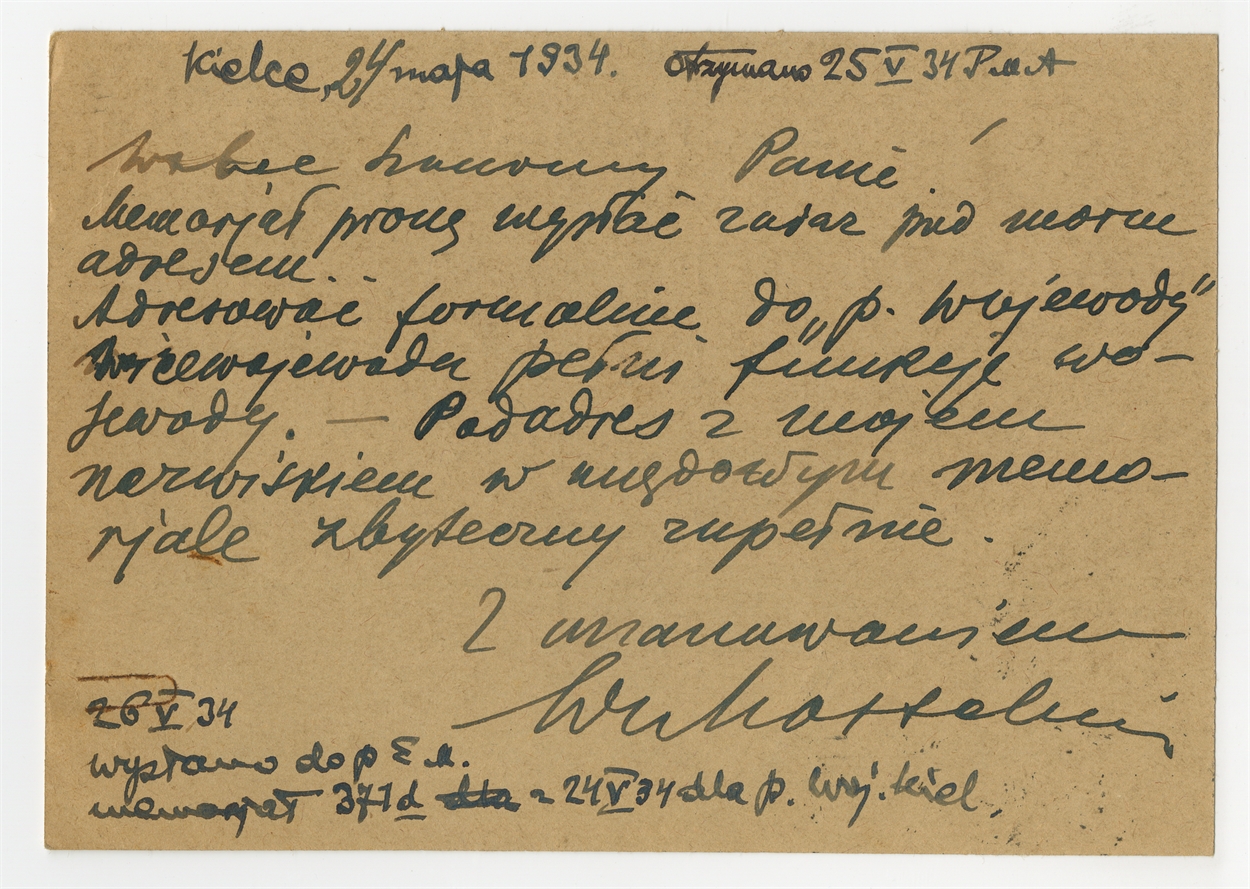 Kielce, 24/ maja 1934. otrzymano 25 V 34 P.M.A
Wielce Szanowny Panie.
Memorjał proszę wysłać zaraz pod moim
adresem..
Adresować formalnie do „p. Wojewody"
Wicewojewoda pełni funkcję wo-
jewody. — Podadres z mojem
nazwiskiem w memo-
rjale zbyteczny zupełnie.
Z uszanowaniem
26 V 34
wysłano do p E M.
memorjał 371 d dta z 24 V 34 dla p. Woj. Kiel.